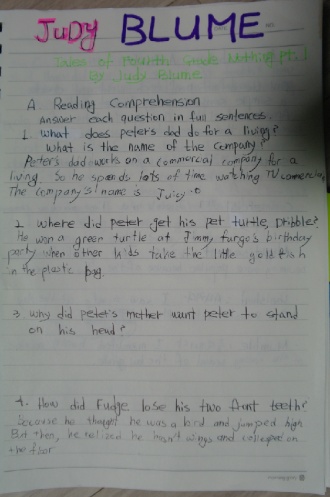 JuDy BLUME
Tales of Fourth Grade Nothing Pt. 1
By Judy Blume
A Reading Comprehension
Answer each question in full sentences
1. What does peter's dad do for a living?
What is the name of the company?
Peter's dad works on a commercial company for a
living. So he spends lots of time watching TV commercials,
The company's name is Juicy-O
2. Where did peter get his pet turtle, Dribble?
He won a green turtle at Jimmy fargo's birthday
party when other kids take the little goldfish
in the plastic bag.
3. Why did peter's mother want peter to stand
on his head?
4. How did Fudge lose his two front teeth?
Because he thought he was a bird and jumped high
But then, he realized he hasn't wings and on
the floor